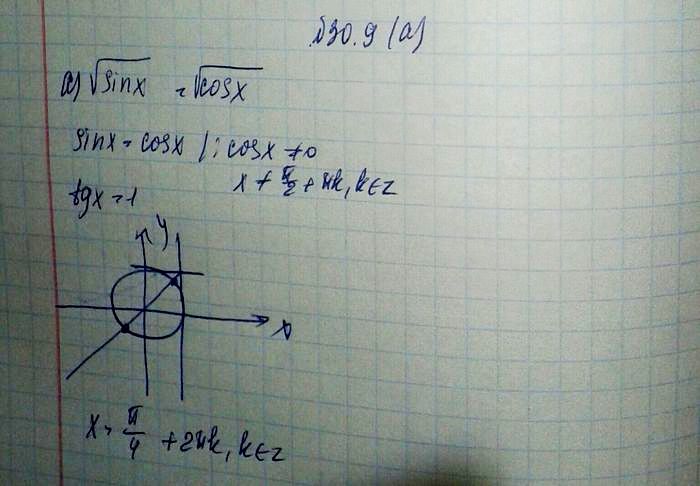 №30.9 (а)
а) √sinx = √cosx
sinx = cosx | : cosx ≠ 0
x ≠ π/2 + πk, k∈Z
tgx = 1
y
x
x = π/4 + 2πk, k∈Z